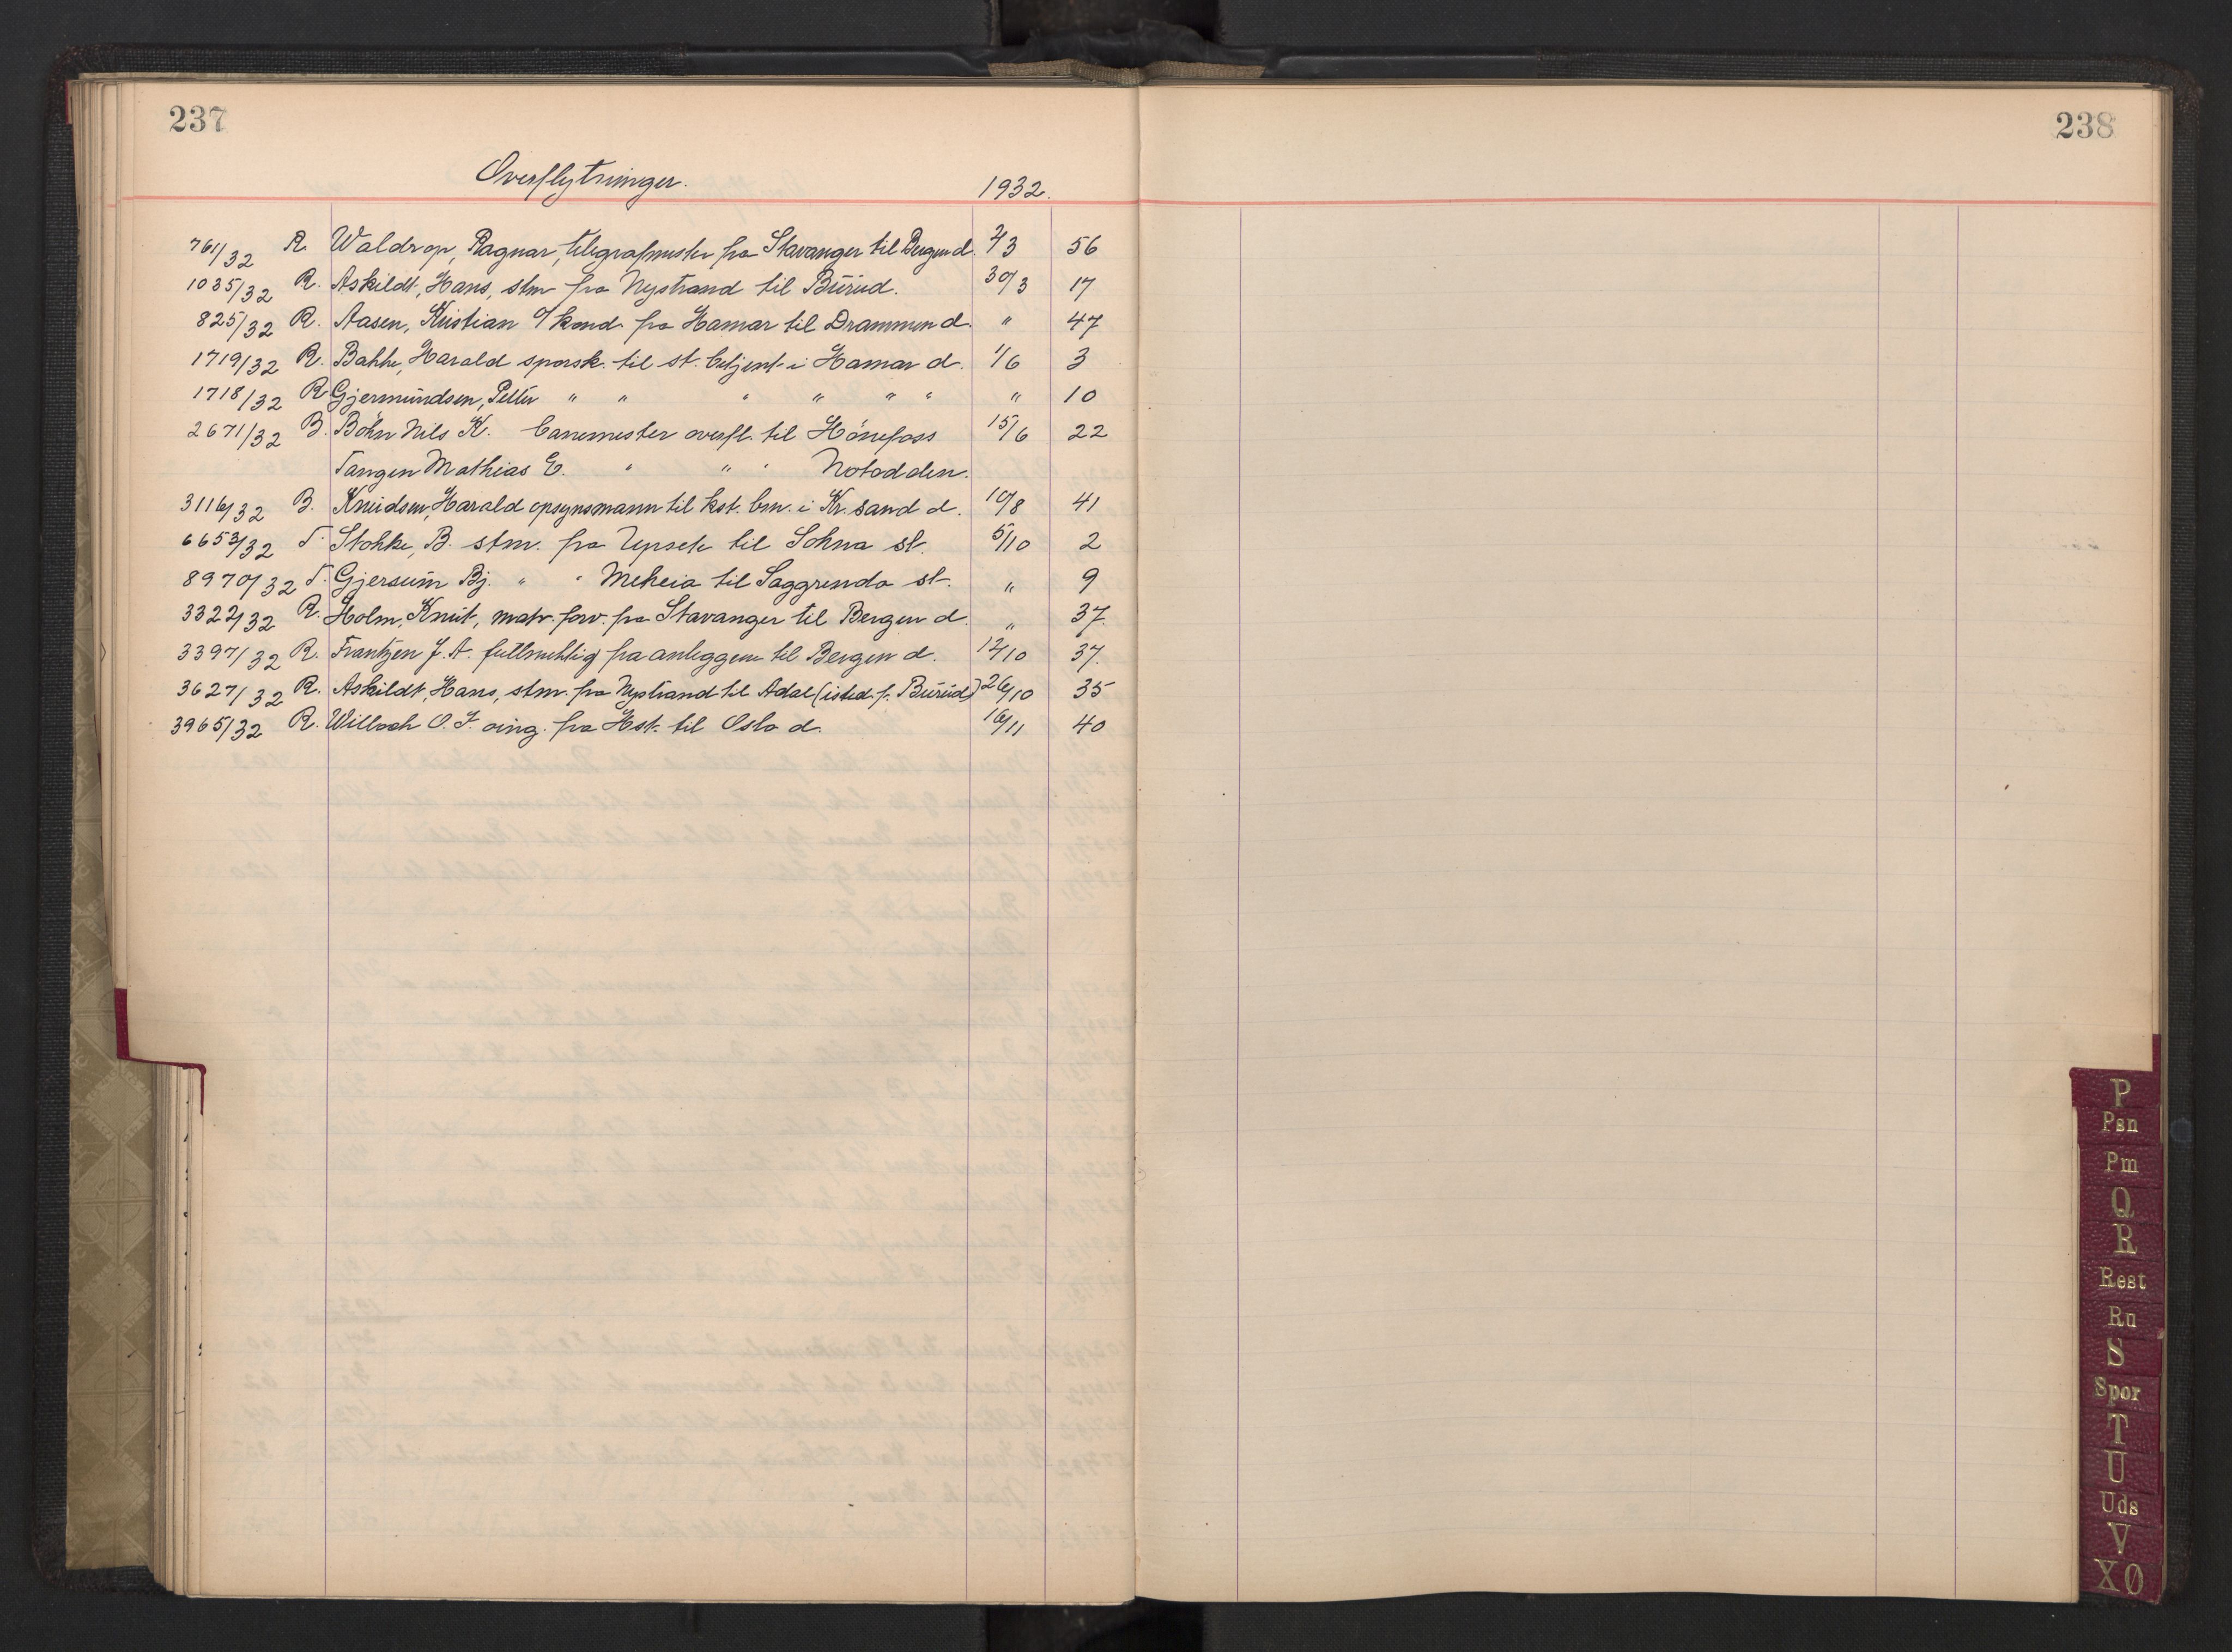 237
238
Overflytninger.
1932.
761/32 R. Waldrop, Ragnar, telegrafmester fra Stavanger til Bergen d. 2/3 56
1035/32 R. Askildt, Hans, stm fra Nystrand til Burud. 30/3 17
825/32 R. Aasen, Kristian o/kond. fra Hamar til Drammen d. " 47
1719/32 R. Bakke, Harald sporsk. til st. betjent i Hamar d. 1/6 3
1718/32 R Gjermundsen, Petter " " " " " " " 10
2671/32 B. Böhn Nils K. banemester overfl. til Hönefoss 15/6 22
Tangen Mathias E. " " " Notodden.
3116/32 B. Knudsen, Harald opsynsmann til kst. bm. i Kr.sand d. 10/8 41
6653/32 T. Stokke, B. stm. fra Upsete til Sokna st. 5/10 2
8970/32 T. Gjersum Bj. " " Meheia til Saggrenda st. " 9
3322/32 R. Holm, Knut, matr. forv. fra Stavanger til Bergen d. " 37.
3397/32 R. Frantzen J. A. fullmektig fra anleggene til Bergen d. 12/10 37.
3627/32 R. Askildt, Hans, stm. fra Nystrand til Adal (isted. f. Burud) 26/10 35
3965/32 R. Willoch O. F. oing. fra Hst. til Oslo d. 16/11 40
P
Psn
Pm
Q
R
Rest
Ru
S
Spor
T
U
Uds
V
XØ